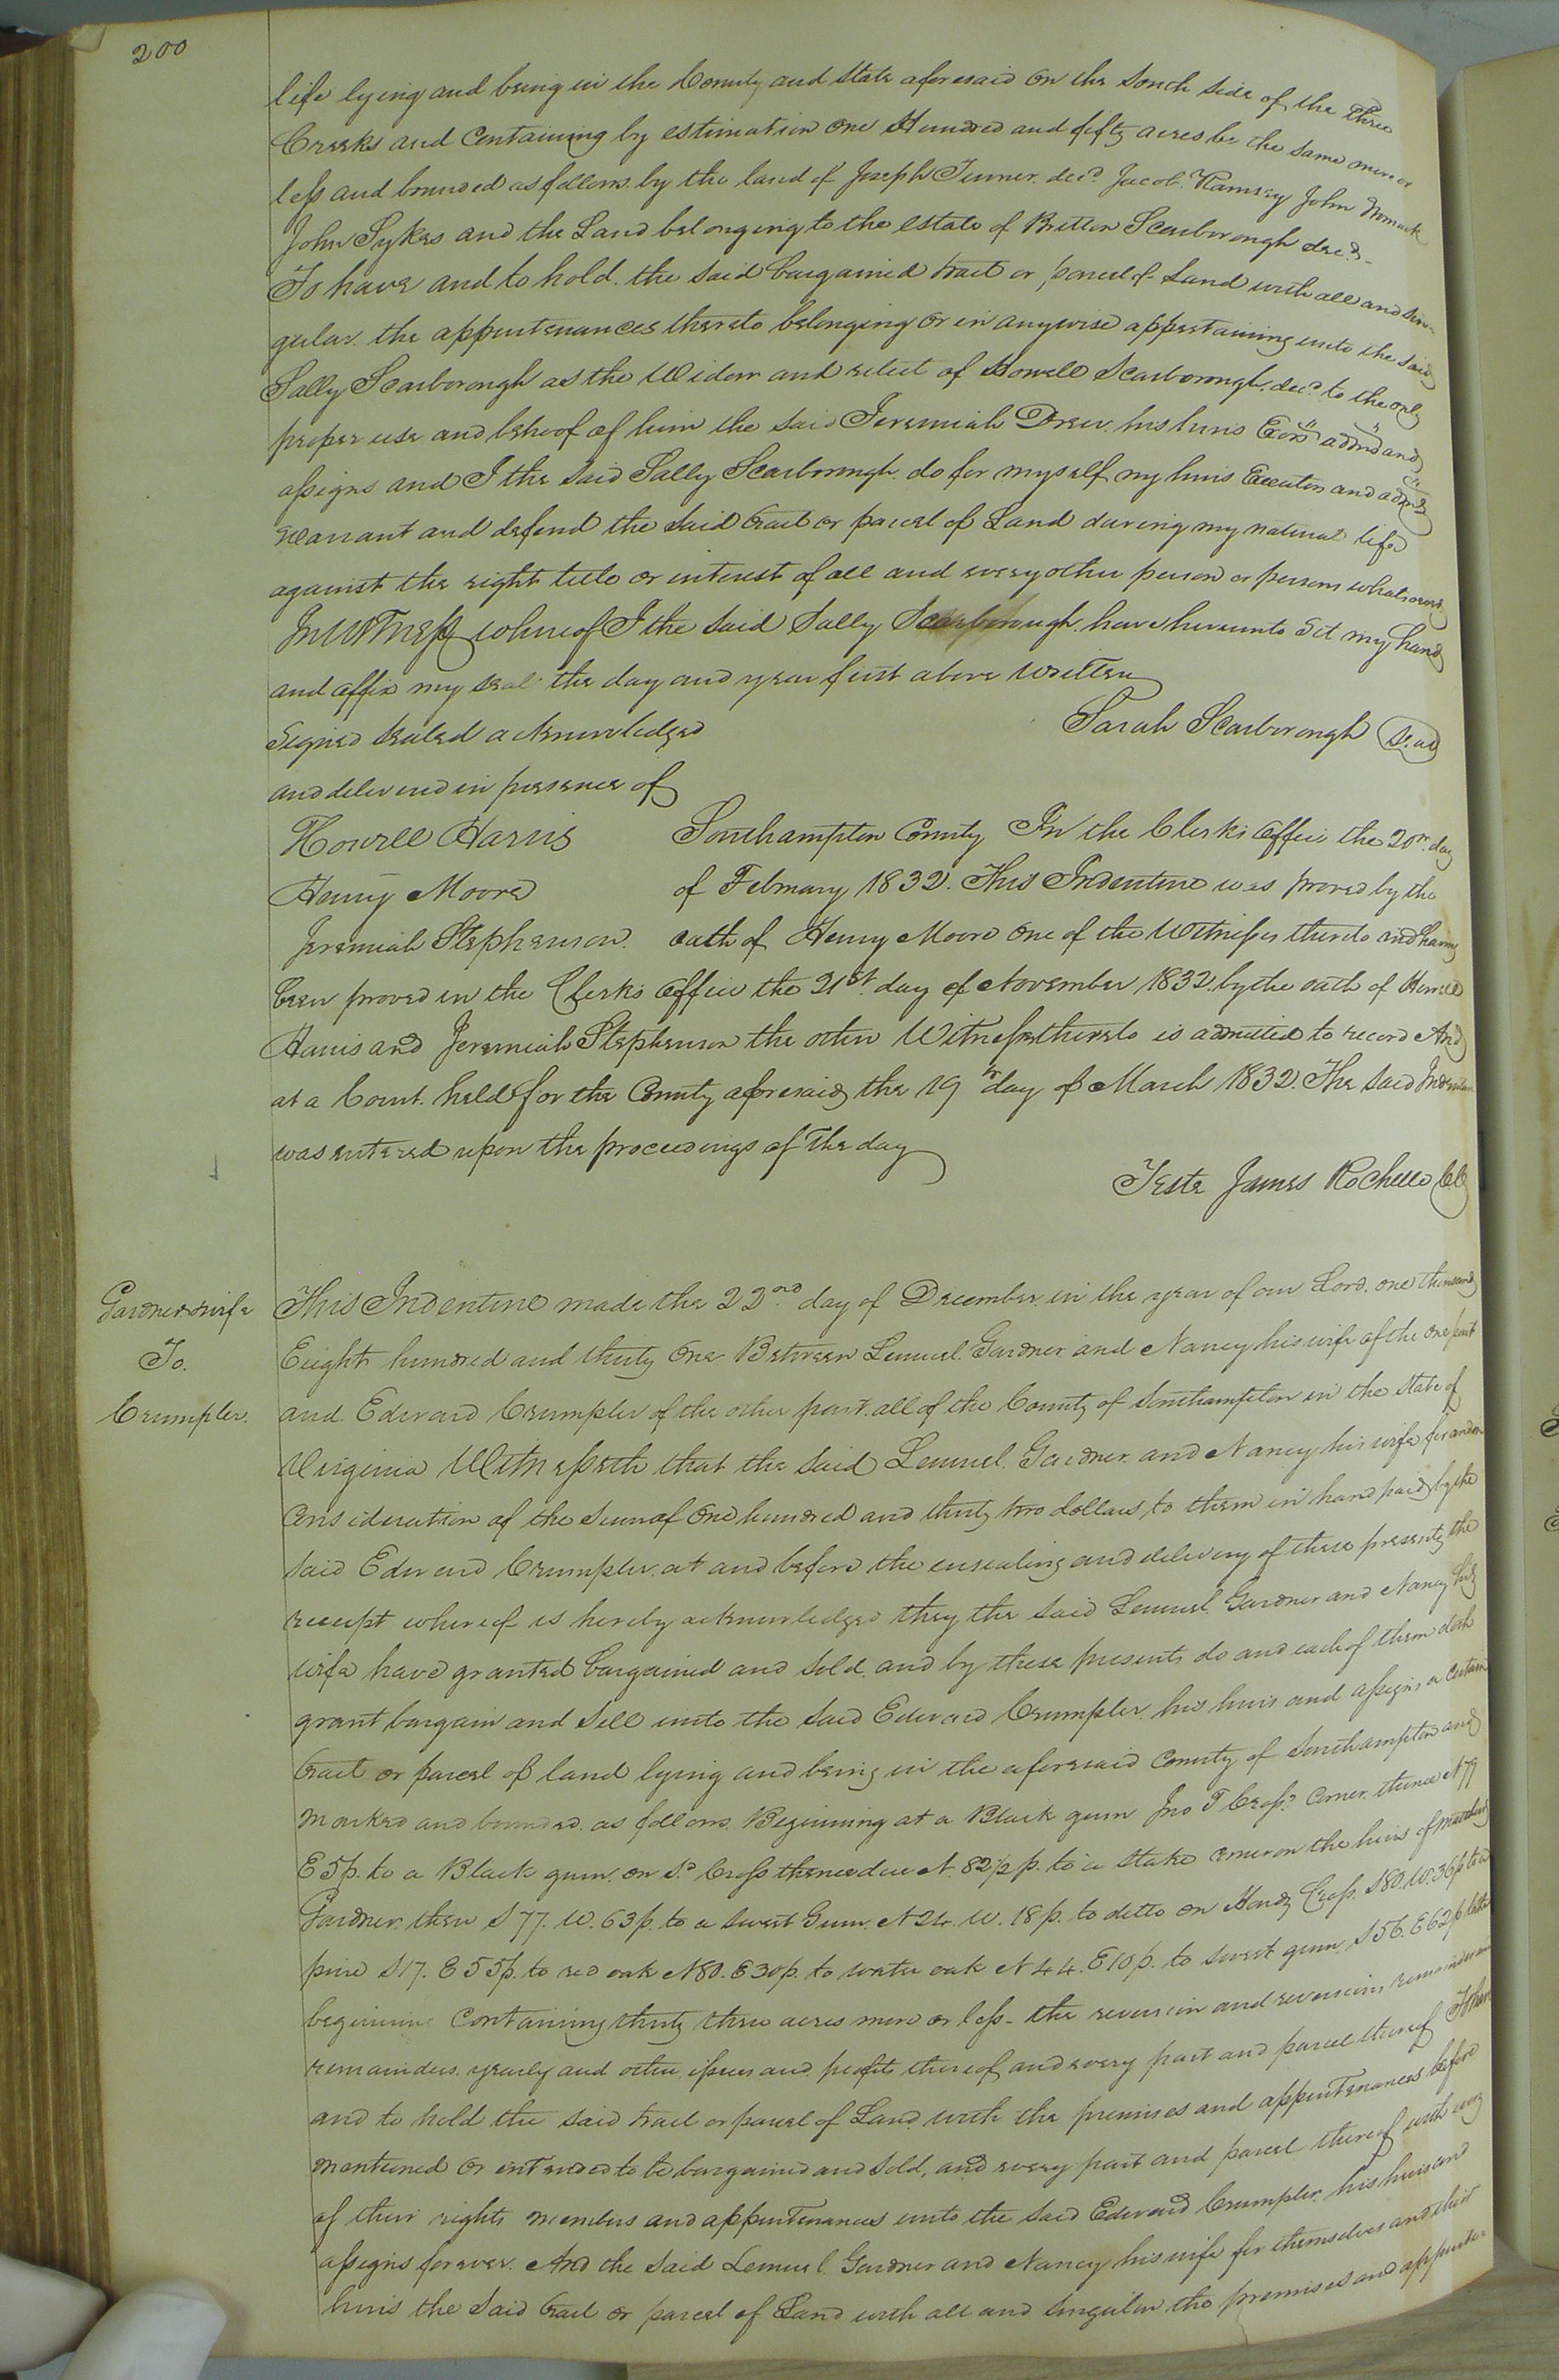 200
life lying and being in the County and State aforesaid on the South side of the Three
Creeks and Containing by estimation one Hundred and fifty acres be the same more or
less and bounded as follows. by the land of Joseph Turner. decd. Jacob. Ramsey John Womack
John Sykes and the Land belonging to the estate of Britton Scarborough decd.
To have and to hold. the said bargained tract or parcel of Land with all and sin-
gular. the appurtenances thereto belonging or in anywise appertaining unto the said
Sally Scarborough as the Widow and relect of Howell Scarborough. decd. to the only
proper use and behoof of him the said Jeremiah Drew. his heirs Exors admrs and
assigns and I the said Sally Scarborough. do for myself my heirs Executors and admrs
Warrant and defend the said tract or parcel of Land during my natural life
against the right title or interest of all and every other person or persons whatsoever
In Witness whereof I the said Sally Scarborough. have hereunto Set my hand
and affix my seal the day and year first above Written
Sarah Scarborough Seal
Signed Sealed acknowledged
and delivered in presence of
Howell Harris
Henry Moore
Jeremiah Stephenson.
Southampton County In the Clerks Office the 20th. day
of February 1832. This Indenture was proved by the
oath of Henry Moore One of the Witnesses thereto and having
been proved in the Clerks Office the 21st. day of November 1832. by the oath of Howell
Harris and Jeremiah Stephenson the other Witnesses thereto is admitted to record And
at a Court. held for the County aforesaid the 19th day of March 1832. The said Indenture
was entered upon the proceedings of the day
Teste James Rochelle CC
Gardner & wife
To.
Crumpler.
This Indenture made the 22nd. day of December in the year of our Lord. one thousand
Eight hundred and thirty One. Between Lemuel. Gardner. and Nancy his wife of the one part
and. Edward Crumpler of the other part. all of the County of Southampton in the State of
Virginia Witnesseth that the said Lemuel. Gardner. and Nancy his wife for and in
Consideration of the Sum of One hundred and thirty two dollars, to them in hand paid by the
said Edward Crumpler. at and before the ensealing and delivery of these presents, the
receipt whereof is hereby acknowledged they the said Lemuel. Gardner and Nancy his
wife have granted bargained and sold. and by these presents do and each of them doth
grant bargain and sell unto the said Edward Crumpler. his heirs and assigns a certain
tract or parcel of land lying and being in the aforesaid County of Southampton and
marked and bounded. as follows. Beginning at a Black gum Jno T Cross's Corner. thence N 79
E 5p. to a Black gum. on sd. Cross thence due N. 82½ p. to a Stake corner on the heirs of Matthew
Gardner. then S 77. W. 63p. to a Sweet Gum. N 24. W. 18 p. to ditto on Hardy Cross. S 80. W. 36p to a
pine S 17. E 55p. to red oak N 80. E 30p. to water oak N 44. E 10 p. to sweet gum S 56. E 62p to the
beginning Containing thirty three acres more or less - the reversion and reversions, remainder and
remainders. yearly and other issues and profits thereof and every part and parcel thereof To have
and to hold the said tract or parcel of Land with the premises and appurtenances before
mentioned Or intended to be bargained and sold, and every part and parcel thereof with every
of their rights members and appurtenances unto the said Edward Crumpler his heirs and
assigns forever. And the said Lemuel. Gardner and Nancy his wife for themselves and their
heirs the said tract or parcel of Land with all and singular the premises and appurte-